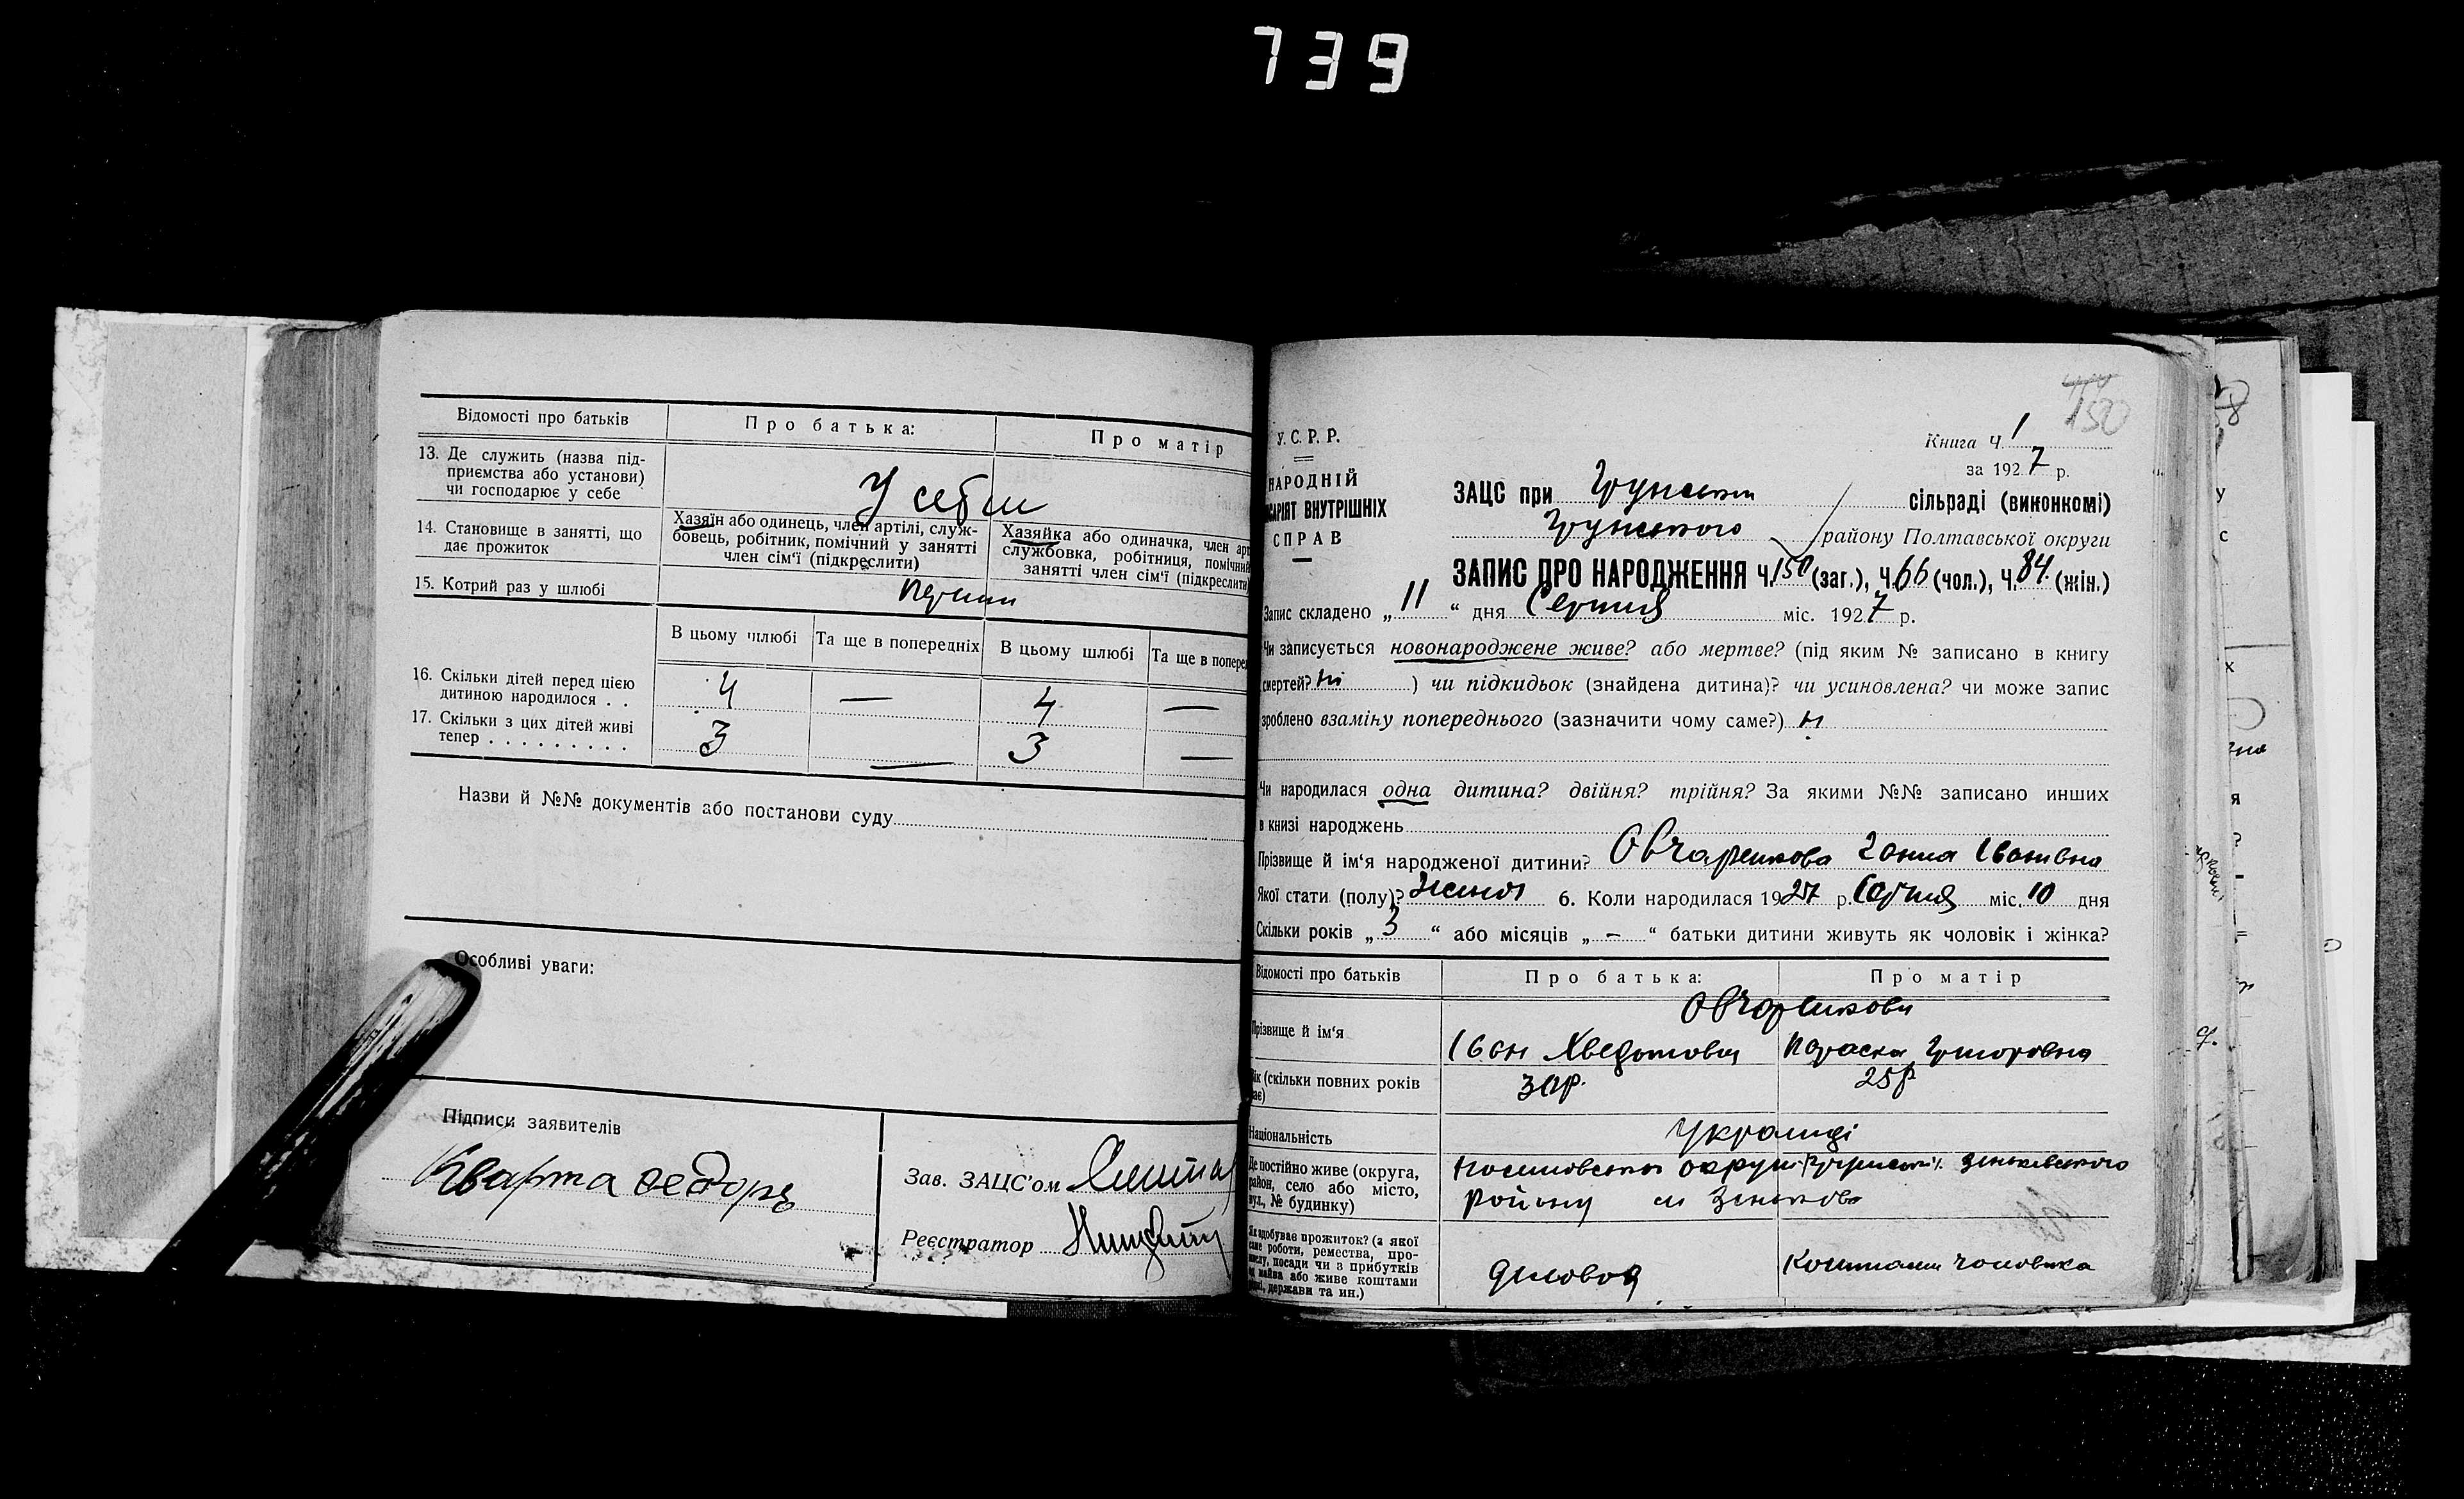 739
Відомості про батьків
Про батька:
Про матір
13. Де служить (назва під-
приємства або установи)
чи господарює у себе
У себе
14. Становище в занятті, що
дає прожиток
Хазяїн або одинець, член артілі, служ-
бовець, робітник, помічний у занятті
член сім'ї (підкреслити)
Хазяйка або одиначка, член арт
службовка, робітниця, помічни
занятті член сім'ї (підкреслити
15. Котрий раз у шлюбі
В цьому шлюбі
Та ще в попередніх
В цьому шлюбі
Та ще в поперед
16. Скільки дітей перед цією
дитиною народилося . .
4 — 4 —
17. Скільки з цих дітей живі
тепер . . . . . . . . . .
3 — 3 —
Назви й №№ документів або постанови суду
Особливі уваги:
Підписи заявителів
Кварта
Зав. ЗАЦС'ом
Реєстратор
150
У. С. Р. Р.
НАРОДНІЙ
САРІЯТ ВНУТРІШНІХ
СПРАВ
Книга Ч. 1
за 1927 р.
ЗАЦС при Грунській сільраді (виконкомі)
Грунського району Полтавської округи
ЗАПИС ПРО НАРОДЖЕННЯ Ч. 150 (заг.), Ч. 66 (чол.), Ч. 84. (жін.)
Запис складено „11“ дня Серпня міс. 1927 р.
Чи записується новонароджене живе? або мертве? (під яким № записано в книгу
смертей? ні ) чи підкидьок (знайдена дитина)? чи усиновлена? чи може запис
зроблено взаміну попереднього (зазначити чому саме?)
Чи народилася одна дитина? двійня? трійня? За якими №№ записано инших
в книзі народжень
Прізвище й ім'я народженої дитини? Овчаренкова Ганна Іванівна
Якої стати (полу)? 6. Коли народилася 1927 р. Серпня міс. 10 дня
Скільки років „3“ або місяців „–“ батьки дитини живуть як чоловік і жінка?
Відомості про батьків
Про батька:
Про матір
Прізвище й ім'я
Овчаренкови
Іван Хведотович
Параска Григоровна
Вік (скільки повних років
має)
25 р
Національність
Українці
Де постійно живе (округа,
район, село або місто,
вул., № будинку)
округи Зеньківського
Району м Зеньків
Як здобуває прожиток? (з якої
саме роботи, ремества, про-
мислу, посади чи з прибутків
од майна або живе коштами
рідні, держави та ин.)
Коштами чоловіка